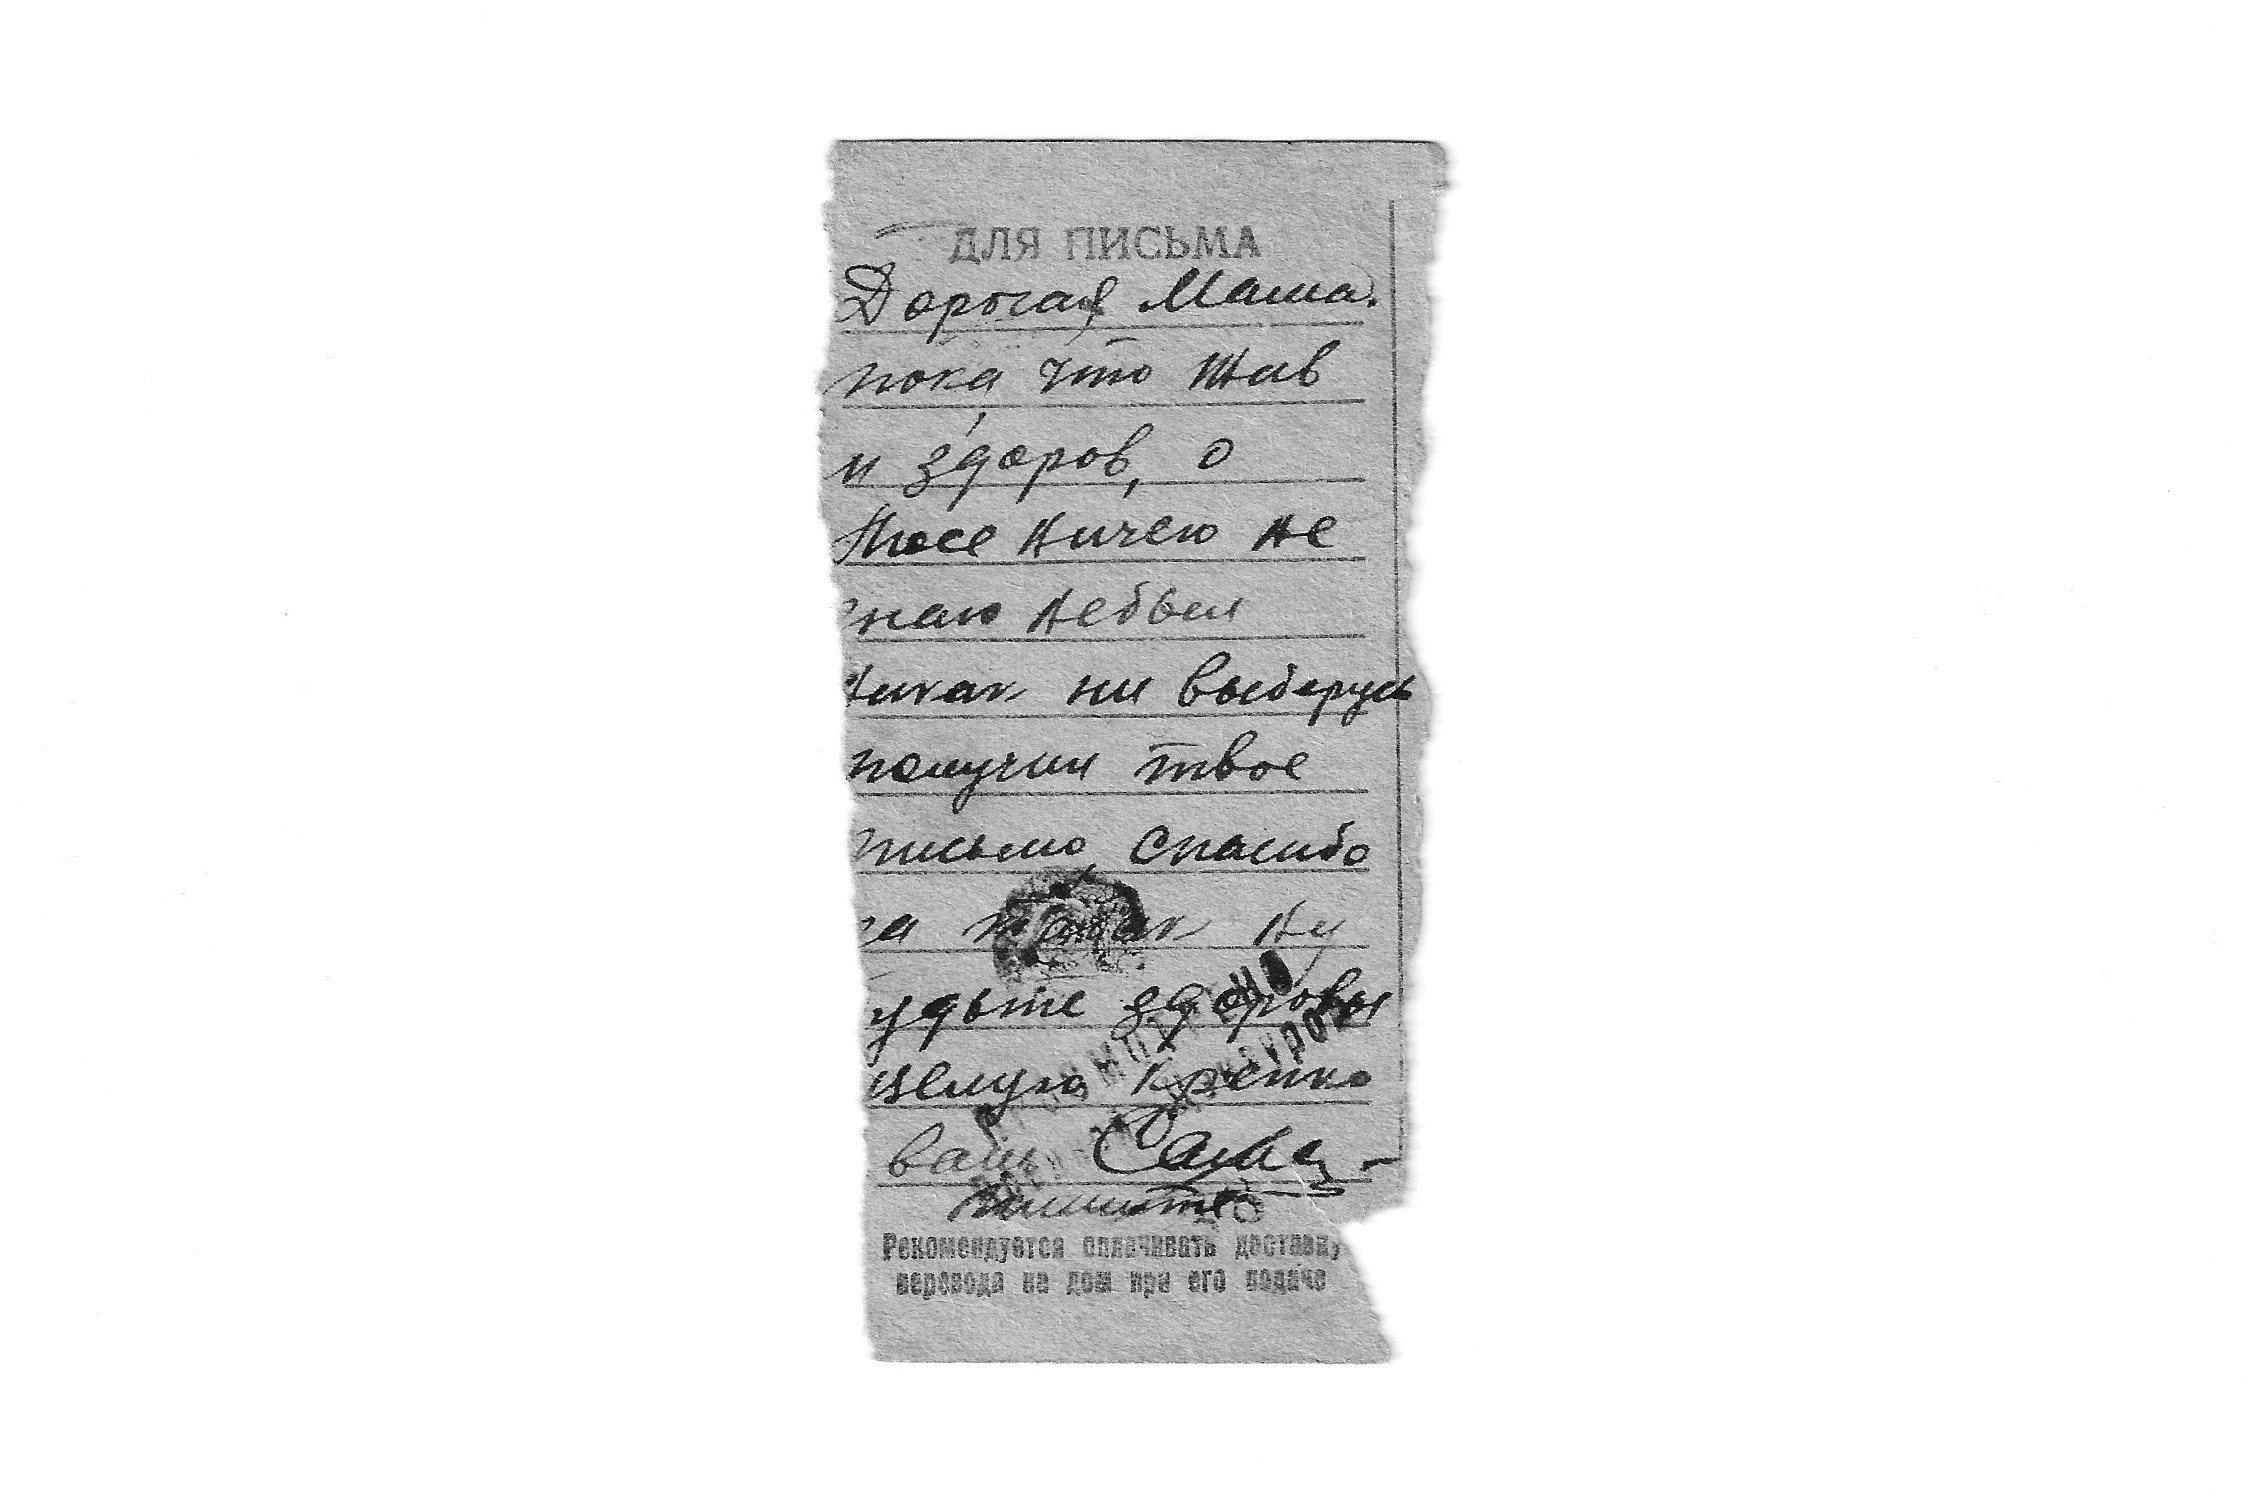 ДЛЯ ПИСЬМА
Дорогая Маша.
пока что жив
и здоров, о
Тосе ничего не
знаю небыл
никак ни выберусь
получил твое
письмо, спасибо
за Ну
будьте здоровы
целую крепко
ваш Саша
пишите
ПРОСМОТРЕНО
Военной Цензурой
Рекомендуется оплачивать доставку
перевода на дом при его подаче